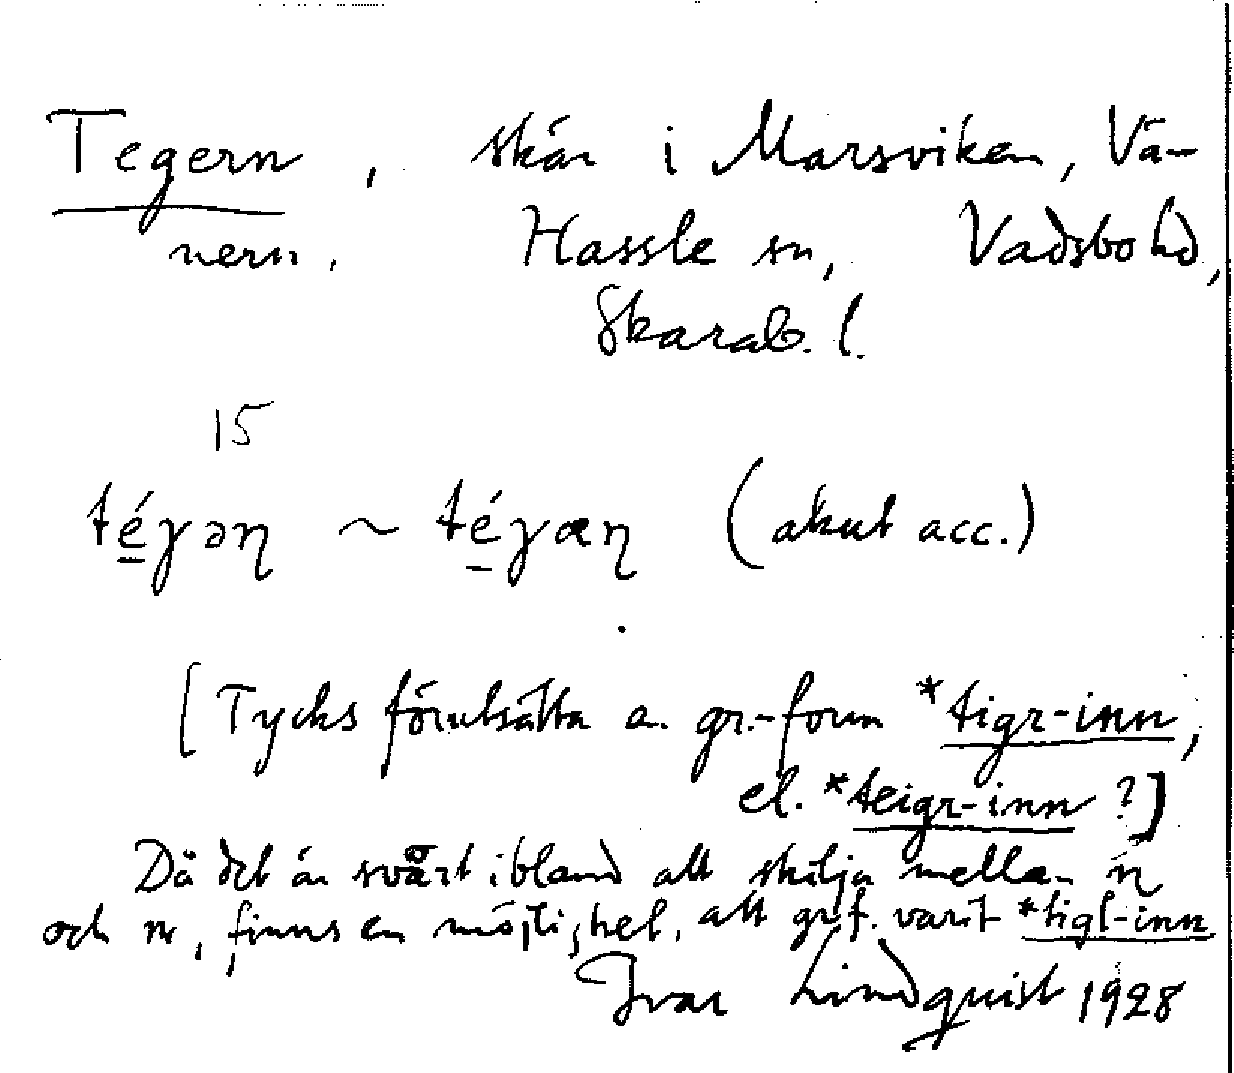 Tegern, skär i Marsviken, Vä-
nern. Hassle sn, Vadsbo hd,
Skarab. l.
15
té̲γən ~ té̲γæn (akut acc.)
[Tycks förutsätta a. gr.-form *tigr-inn,
el. *teigr-inn ?]
Då det är svårt ibland att skilja mellan n
och n, finns en möjlighet, att grf. varit *tigl-inn
Ivar Lindquist 1928